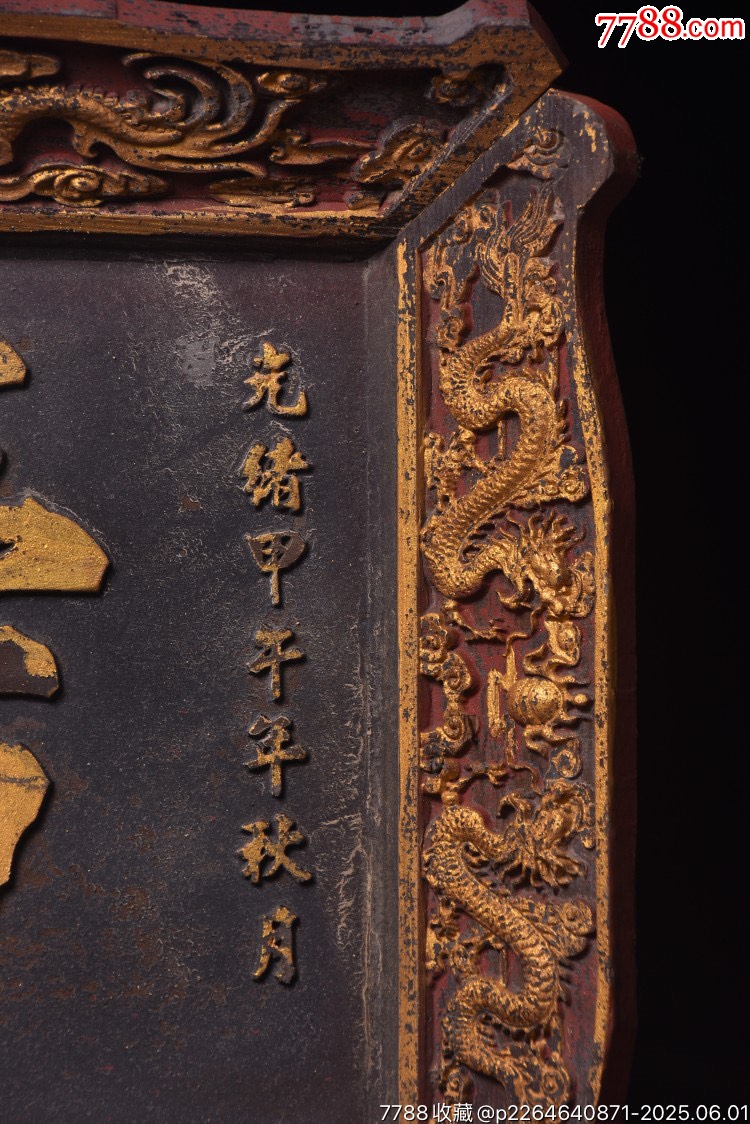 7788.com
光绪甲午年秋月
7788收藏@p2264640871-2025.06.01